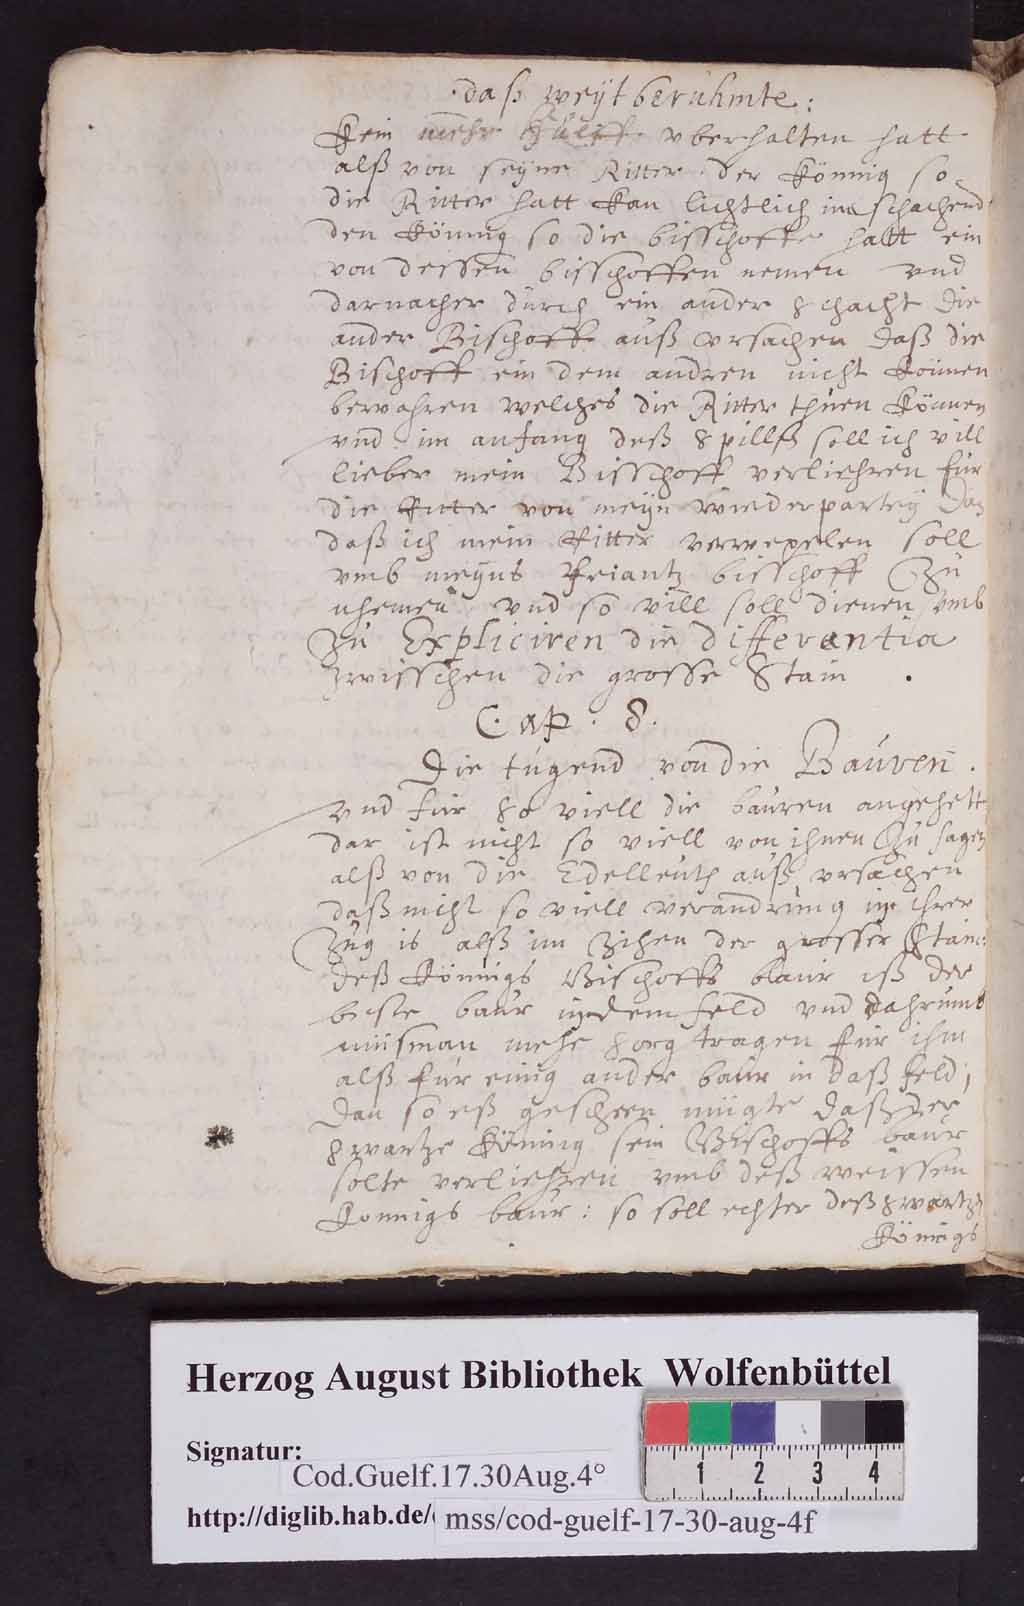 daß weÿt berühmte:
Kein mehr hülff vberhalten hatt
alß von seÿne Ritter. der Könnig so
die Ritter hatt kan lichtlich in schachend
den Könnig so die bisschoffe hatt ein
von dessen bisschoffen nemen vnd
darnacher dürch ein ander schacht die
ander Bischoff auß vrsachen daß die
Bischoff ein dem andren nicht können
bewahren welches die Ritter thuen können
vnd im anfang deß spillß soll ich vill
lieber mein Bisschoff verliehren für
die Ritter von meÿn wiederparteÿ dan
daß ich mein Ritter verwepelen soll
vmb meÿns feiantz bisschoff zu
nhemen vnd so vill soll dienen vmb
zu Expliciren die differentia
zwisschen die grosse Stain.
Cap. 8.
Die tugend von die Bauren.
vnd für so viell die bauren angehett
dar ist nicht so viell von ihnen zu sagen
alß von die Edelleuth auß vrsachen
daß nicht so viell verandrung in ihrer
zug is alß im zihen der grosser Stain:
deß Königs Bischoffs baur iß der
beste baur in dem feld vnd dahrumb
müsman mehe sorg tragen für ihm
alß für einig ander baur in daß feld;
dan so eß geschehen mügte daß der
swartze Könnig sein Bischoffs baur
solte verliehren vmb deß weissen
Konnigs baur: so soll echter deß swartzen
Königs
Herzog August Bibliothek Wolfenbüttel
Signatur:
Cod.Guelf.17.30Aug.4°
http://diglib.hab.de/ mss/cod-guelf-17-30-aug-4f
1 2 3 4